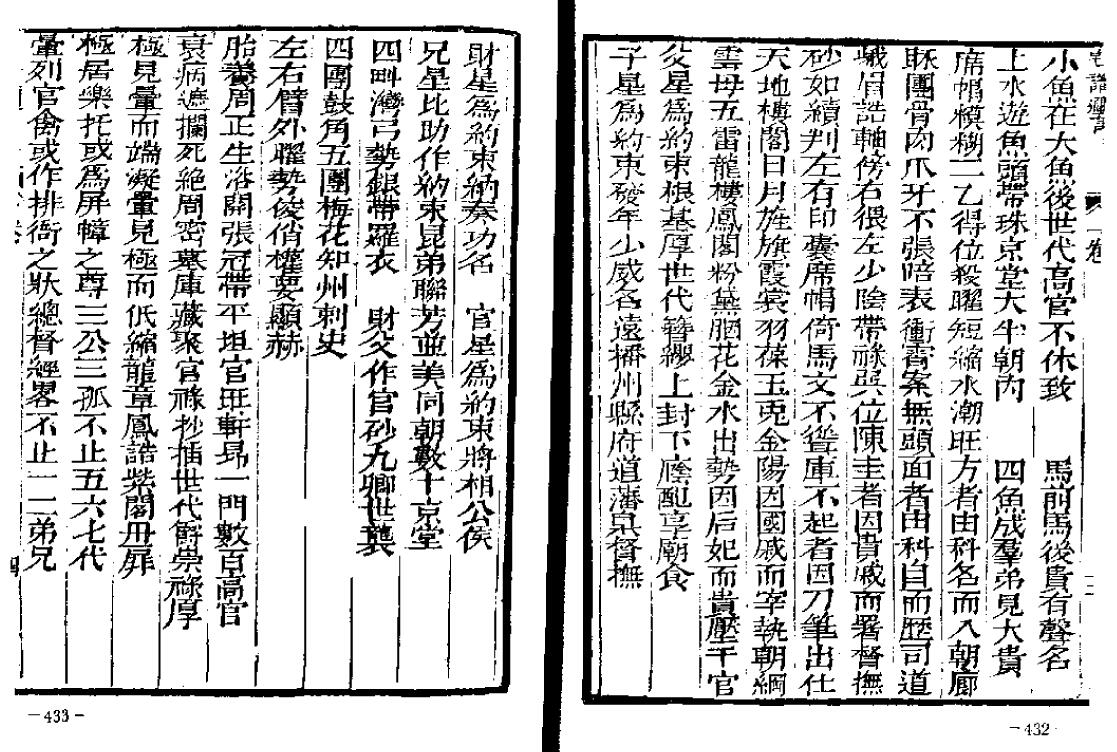 小魚在大魚後世代高官不休致　馬前馬後貴有聲名
上水遊魚頭帶珠京堂大半朝內　四魚成羣弟見大貴
席帽模糊一乙得位殺曜短縮水潮旺方者由科名而入朝廊
脉團骨肉爪牙不張暗表衝香案無頭面者由科目而歷司道
蛾眉誥軸傍右很左少陰帶祿與位陳圭者因貴戚而署督撫
砂如績判左有印囊席帽倚馬文不聳庫不起者因刀筆出仕
天地樓閣日月旌旗霞裳羽葆玉兎金陽因國戚而宰執朝綱
雲母五雷龍樓鳳閣粉黛胭花金水出勢因后妃而貴壓千官
父星為約束根基厚世代簪纓上封下廕配享廟食
子星為約束發年少威名遠播州縣府道藩臬督撫
－432－
財星為約束納奏功名　官星為約束將相公侯
兄星比助作約束昆弟聯芳並美同朝數十京堂
四畔灣弓勢銀帶羅衣　財父作官砂九卿世襲
四團鼓角五團梅花知州刺史
左右臂外曜勢俊俏權要顯赫
胎養周正生浴開張冠帶平坦官旺軒昻一門數百高官
衰病遮攔死絕周密墓庫藏聚官祿抄插世代爵崇祿厚
極見暈而端凝暈見極而低縮龍章鳳誥紫閣丹扉
極居樂托或為屏幛之尊三公三孤不止五六七代
暈列官禽或作排衙之狀總督經畧不止一二弟兄
－433－